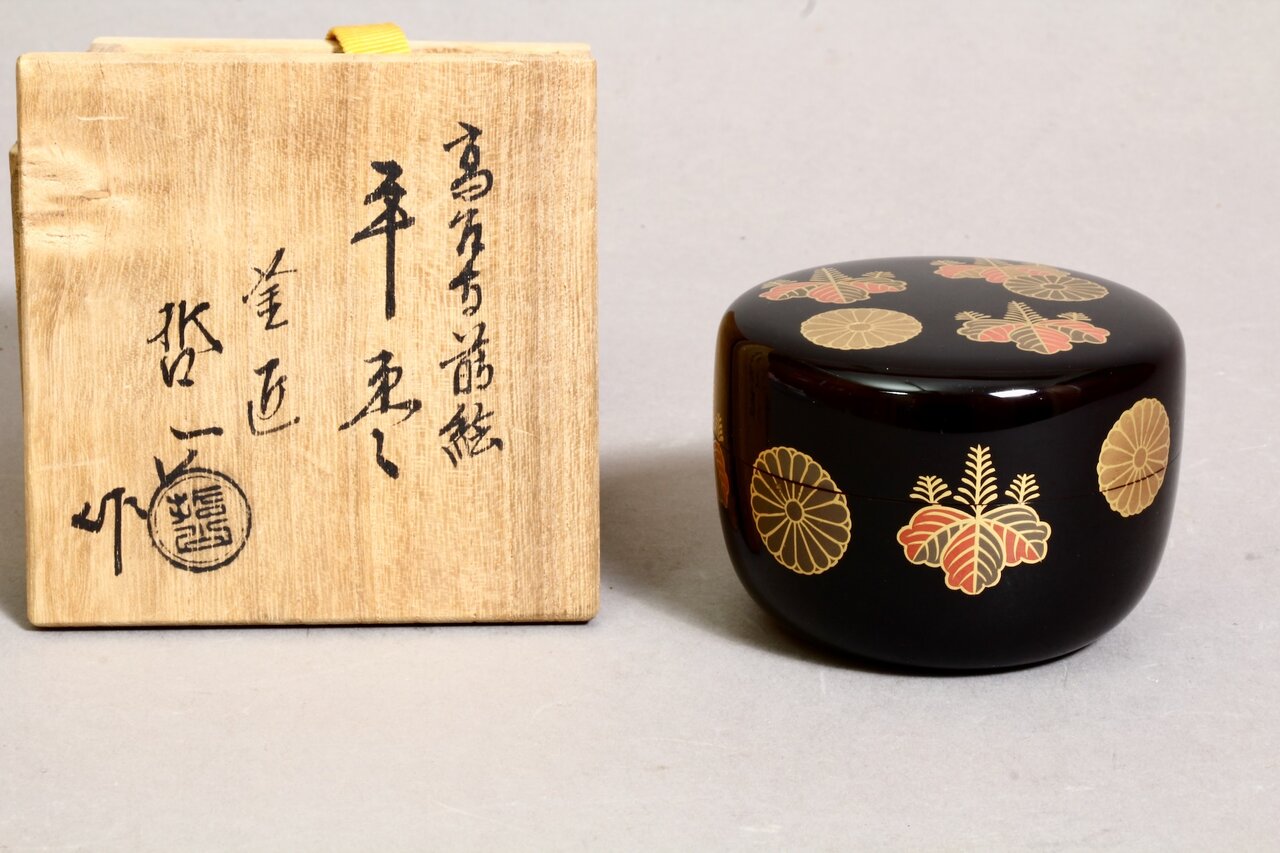 高台寺蒔絵
平棗
塗匠
哲一
作